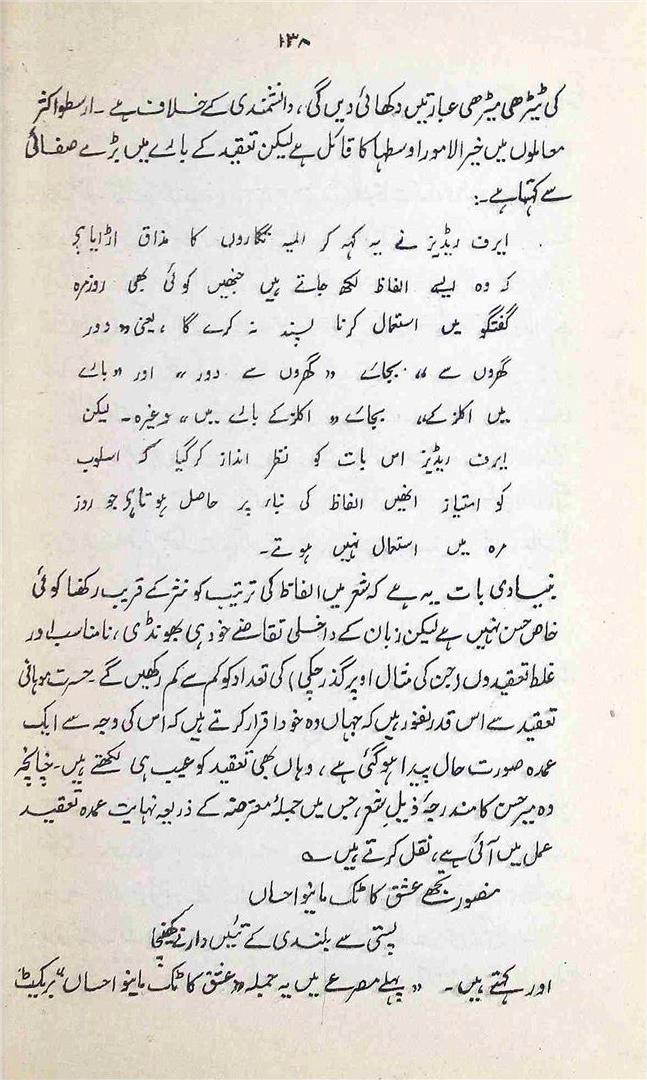 ۱۳۸
کی ٹیڑھی میڑھی عبارتیں دکھائی دیں گی، دانشمندی کے خلاف ہے۔ ارسطو اکثر
معاملوں میں خیر الامور اوسطہا کا قائل ہے لیکن تعقید کے بارے میں بڑے صفائی
سے کہتا ہے۔:
ایرف ریڈیز نے یہ کہہ کر المیہ نگاروں کا مذاق اڑایا ہے
کہ وہ ایسے الفاظ لکھ جاتے ہیں جنھیں کوئی بھی روزمرہ
گفتگو میں استعمال کرنا پسند نہ کرے گا، یعنی "دور
گھروں سے" بجائے "گھروں سے دور" اور "بارے
میں اکلز کے" بجائے "اکلز کے بارے میں" وغیرہ۔ لیکن
ایرف ریڈیز اس بات کو نظر انداز کر گیا کہ اسلوب
کو امتیاز انھیں الفاظ کی بناء پر حاصل ہوتا ہے جو روز
مرہ میں استعمال نہیں ہوتے۔
بنیادی بات یہ ہے کہ شعر میں الفاظ کی ترتیب کو نثر کے قریب رکھنا کوئی
خاص حسن نہیں ہے لیکن زبان کے داخلی تقاضے خود ہی بھونڈی، نامناسب اور
غلط تعقیدوں (جن کی مثال اوپر گذر چکی) کی تعداد کو کم سے کم رکھیں گے۔ حسرت موہانی
تعقید سے اس قدر نفور ہیں کہ جہاں وہ خود اقرار کرتے ہیں کہ اس کی وجہ سے ایک
عمدہ صورت حال پیدا ہو گئی ہے، وہاں بھی تعقید کو عیب ہی لکھتے ہیں۔ چنانچہ
وہ میر حسن کا مندرجۂ ذیل شعر، جس میں جملۂ معترضہ کے ذریعہ نہایت عمدہ تعقید
عمل میں آئی ہے، نقل کرتے ہیں؎
منصور تجھے عشق کا ٹک مانیو احساں
پستی سے بلندی کے تئیں دار نے کھینچا
اور کہتے ہیں۔ "پہلے مصرعے میں یہ جملہ "عشق کا ٹک مانیو احساں" بریکیٹ